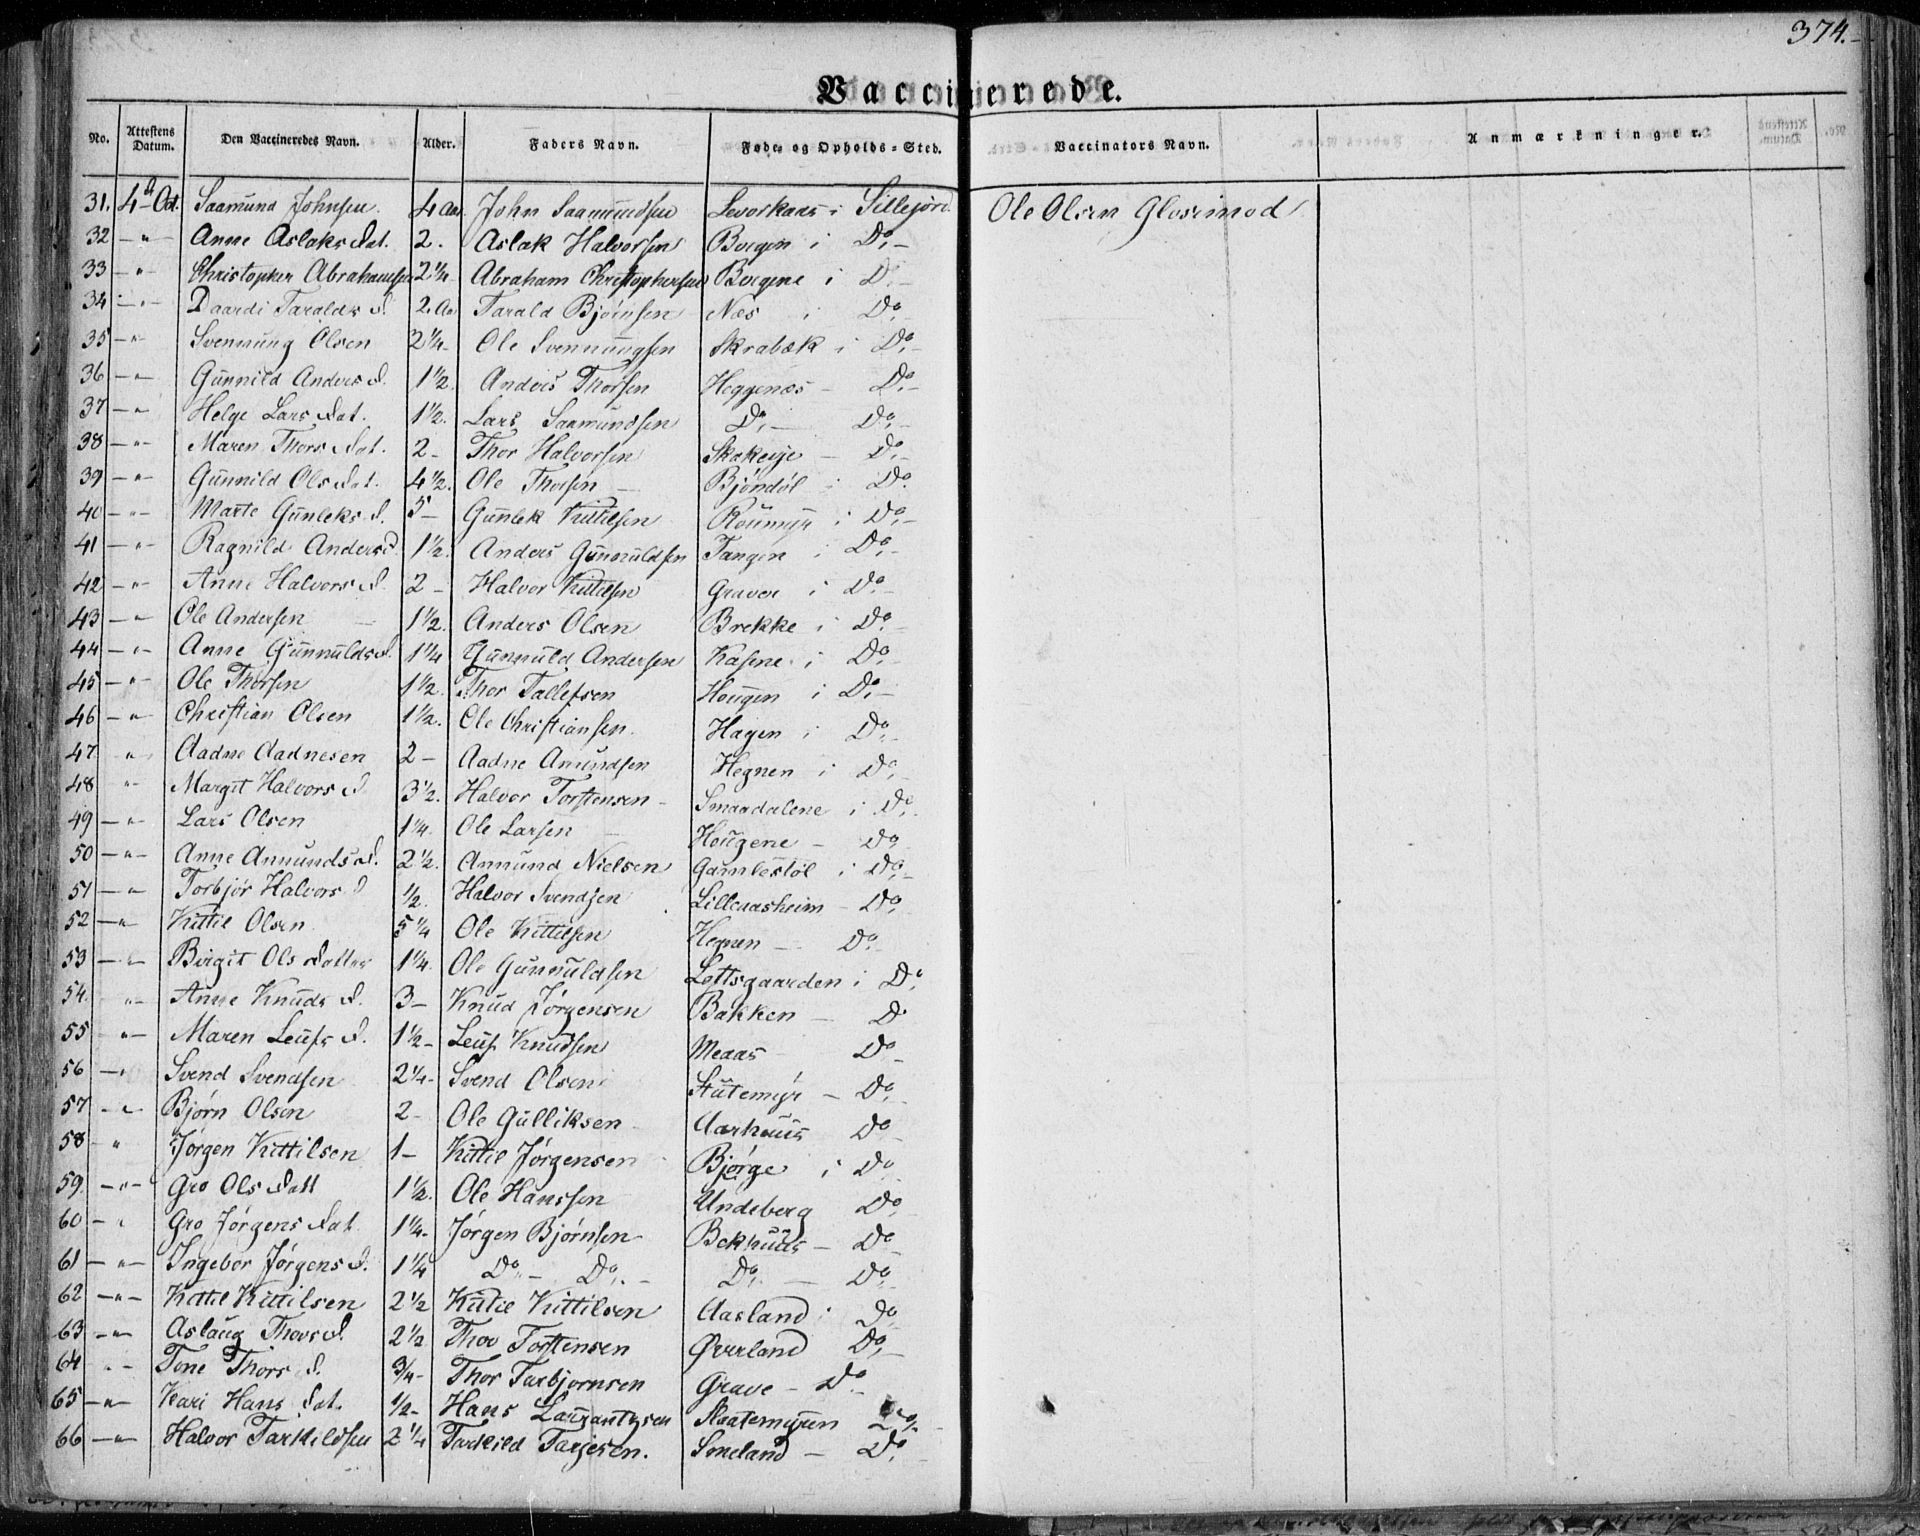 374.
Vaccinerede.
No. Attestens Datum. Den Vaccineredes Navn. Alder. Faders Navn. Føde- og Opholds-Sted. Vaccinators Navn. Anmærkninger.
31. 4de Oct. Saamund Johnsen 4 Aar. John Saamundsen i Sillejord. Ole Olsen
32 — " Anne Aslaks Dat. 2. Aslak Halvorsen Borgen i Do —
33 — " Christopher Abrahamsen 2 1/4. Abraham Christophersen Borgene i Do —
34 — " Daardi Taralds D. 2. Aar Tarald Bjørnsen Næs i Do
35 — " Svennung Olsen 2 1/4 Ole Svennungsen Skrabæk i Do —
36 — " Gunnild Anders D. 1 1/2. Anders Thorsen Heggenæs — Do
37 — " Helge Lars Dat. 1 1/2. Lars Saamundsen Do — Do —
38 — " Maren Thors Dat. 2 — Thor Halvorsen — Do
39 — " Gunnild Ols Dat. 4 1/2. Ole Thorsen — Bjøndøl i Do
40 — " Marte Gunleks D. 5 — Gunlek Kittilsen Roumyr i Do —
41 — " Ragnild Anders D. 1 1/2. Anders Gunnuldsen Tangen i Do —
42 — " Anne Halvors D. 2 — Halvor Kittilsen Graver i Do —
43 — " Ole Andersen 1 1/2. Anders Olsen Brekke i Do —
44 — " Anne Gunnulds D. 1 1/4 Gunnuld Andersen Kasene i Do
45 — " Ole Thorsen 1 1/2. Thor Tallefsen Hougen i Do —
46 — " Christian Olsen 1 1/2. Ole Christiansen Hagen i Do —
47 " Aadne Aadnesen 2 — Aadne Amundsen Hegnen i Do —
48 " Margit Halvors D 3 1/2. Halvor Torstensen — Smaadalene i Do
49 — " Lars Olsen 1 1/4. Ole Larsen — Hougene — Do
50 — " Anne Annunds D. 2 1/2. Annund Nielsen Gamlestøl i Do —
51 — " Torbjør Halvors D 1/2. Halvor Svendsen Lilleaasheim — Do
52 — " Kittil Olsen 5 1/4 Ole Kittilsen Hegnen — Do
53 — " Birgit Ols Datter 1 1/4. Ole Gunnuldsen Loftsgaarden i Do
54. " Anne Knuds D. 3 — Knud Jørgensen Bakken — Do
55 " Maren Leufs D. 1 1/2 — Leuf Knudsen Meaas Do —
56 — " Svend Svendsen 2 1/4 — Svend Olsen Stutemyr — Do
57 — " Bjørn Olsen 2 — Ole Gulliksen Aarhuus Do —
58 " Jørgen Kittilsen 1 — Kittil Jørgensen Bjørge i Do
59 — " Gro Ols Datt 1 1/2. Ole Hanssen Undeberg Do
60 — " Gro Jørgens Dat. 1 1/4 — Jørgen Bjørnsen Bekhuus — Do
61 — " Ingebor Jørgens D. 1 1/4 Do — Do — Do — Do
62 — " Kittil Kittilsen 2 1/2 Kittil Kittilsen Aasland i Do
63 — " Aslaug Thors D. 2 1/2 Thor Torstensen Øverland Do —
64 " Tone Thors D. 3/4 — Thor Tarbjornsen Grave — Do
65 — " Kari Hans Dat. 1/2 — Hans Laurantzsen Slaatemyren Do
66 — " Halvor Tarkildsen 2 1/4 Tarkild Tarjesen. Smeland — Do